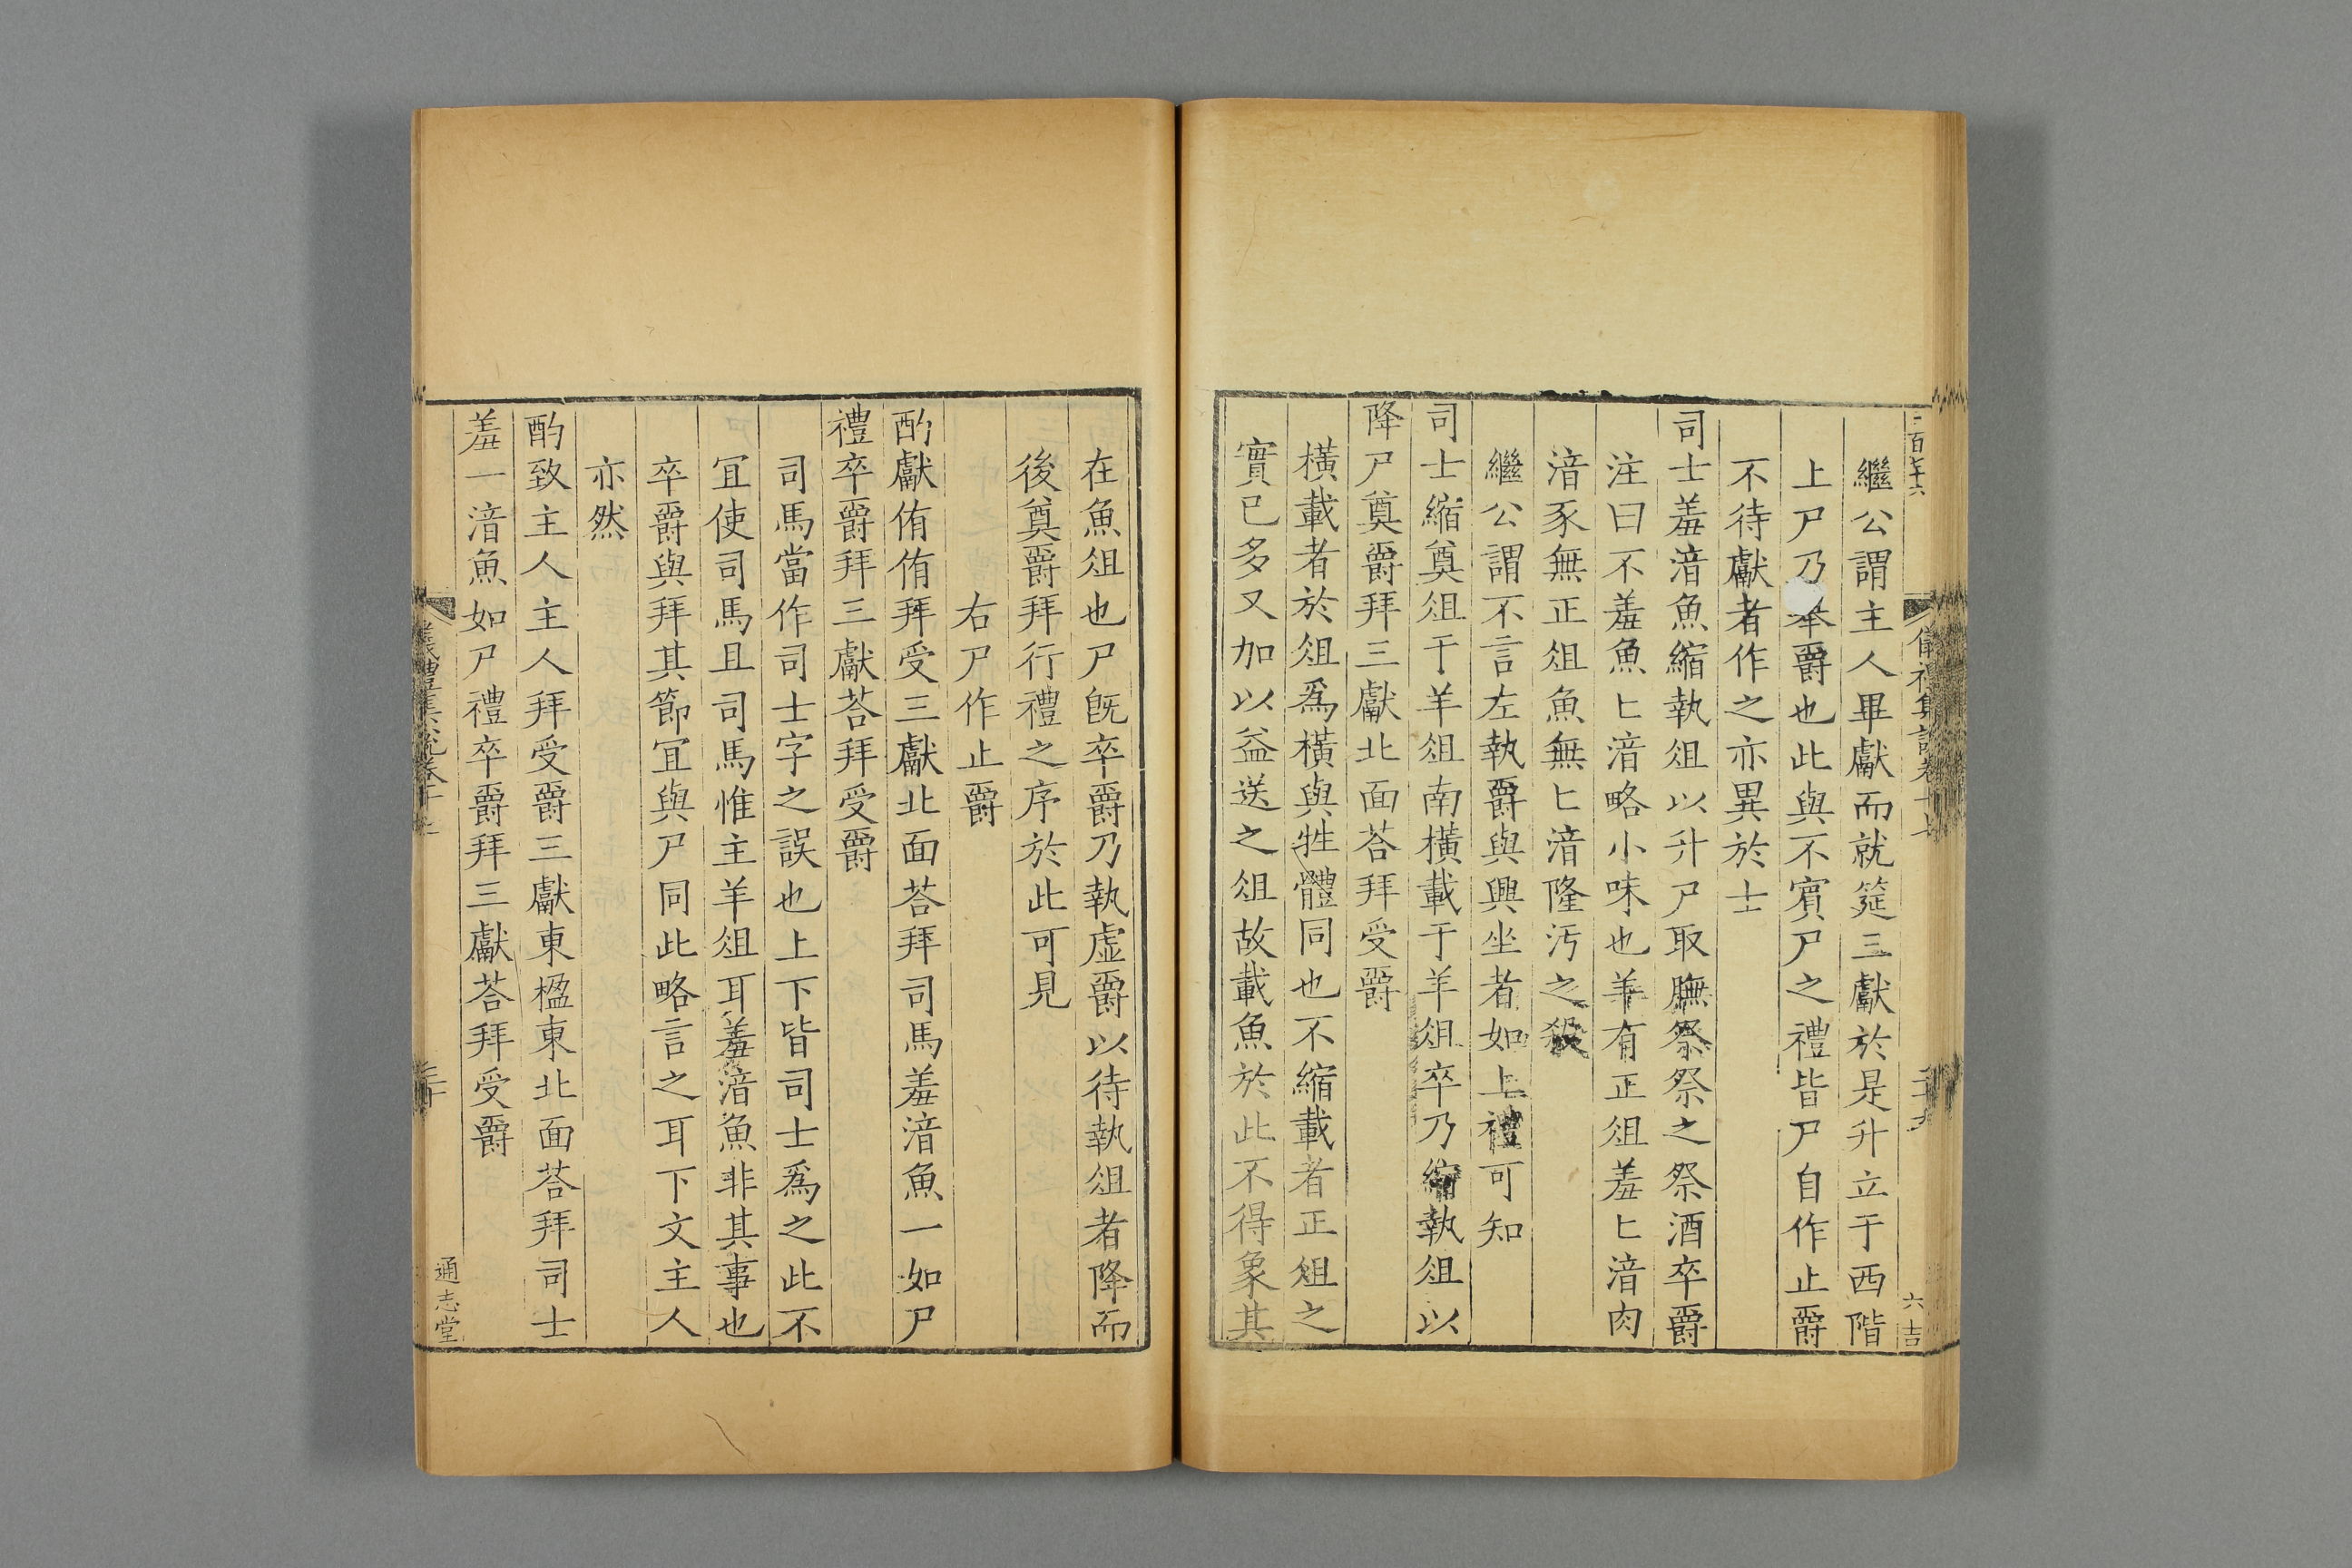 繼公謂主人畢獻而就筵三獻於是升立于西階
上尸乃舉爵也此與不賓尸之禮皆尸自作止爵
不待獻者作之亦異於士
司士羞湆魚縮執俎以升尸取膴祭祭之祭酒卒爵
注曰不羞魚匕湆略小味也羊有正俎羞匕湆肉
湆豕無正俎魚無匕湆隆汚之殺
繼公謂不言左執爵與興坐者如上禮可知
司士縮奠俎于羊俎南橫載于羊俎卒乃縮執俎以
降尸奠爵拜三獻北面荅拜受爵
橫載者於俎爲橫與牲體同也不縮載者正俎之
實已多又加以益送之俎故載魚於此不得象其
在魚俎也尸旣卒爵乃執虛爵以待執俎者降而
後奠爵拜行禮之序於此可見
右尸作止爵
酌獻侑侑拜受三獻北面荅拜司馬羞湆魚一如尸
禮卒爵拜三獻荅拜受爵
司馬當作司士字之誤也上下皆司士爲之此不
冝使司馬且司馬惟主羊俎耳羞湆魚非其事也
卒爵與拜其節冝與尸同此略言之耳下文主人
亦然
酌致主人主人拜受爵三獻東楹東北面荅拜司士
羞一湆魚如尸禮卒爵拜三獻荅拜受爵
通志堂